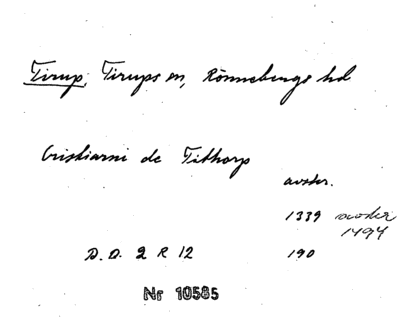 Tirup, Tirups sn, Rönnebergs hd
Cristiarni de Tithorp
avskr.
1339 avskr
1494
D. D. 2 R 12 190
Nr 10585